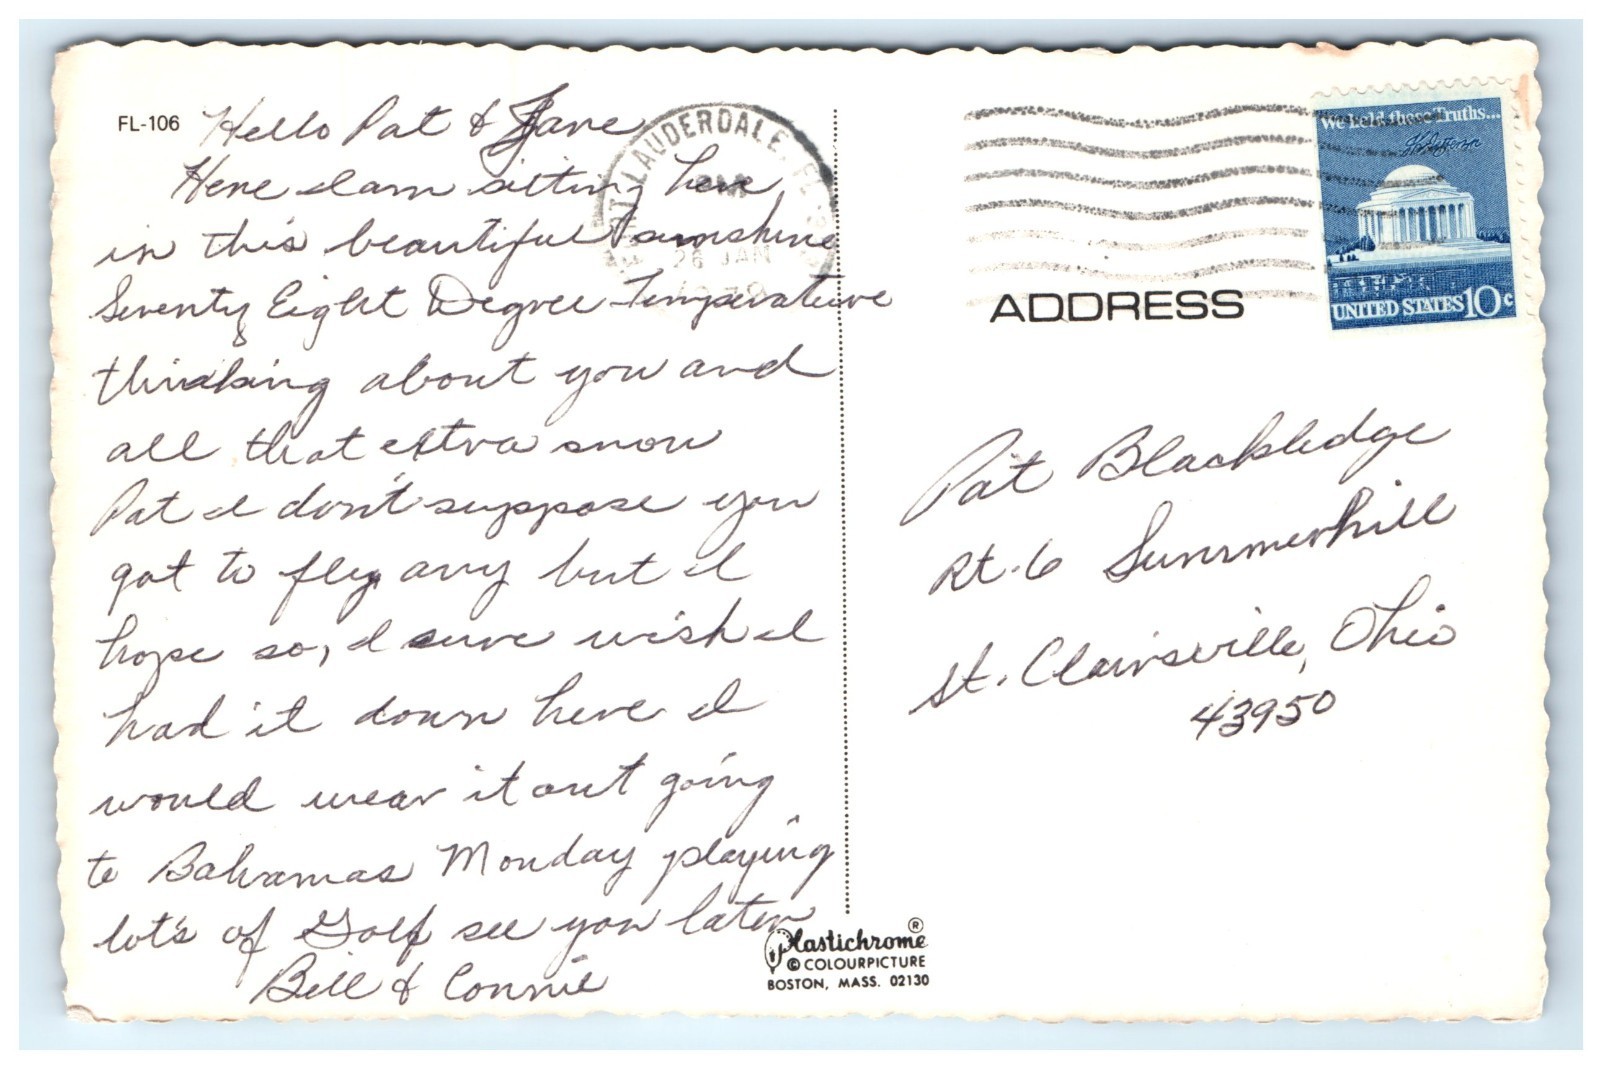 FL-106
Hello Pat & Jane
Here I am sitting here
in this beautiful sunshine
Seventy Eight Degree Temperature
thinking about you and
all that extra snow
Pat I don't suppose you
got to fly any but I
hope so, I sure wish I
had it down here I
would wear it out going
to Bahamas Monday playing
lot's of Golf see you later
Bill & Connie
LAUDERDALE, FL
26 JAN
We hold these Truths...
UNITED STATES 10c
ADDRESS
Pat Blackledge
Rt. 6 Summerhill
St. Clairsville, Ohio
43950
Plastichrome ®
© COLOURPICTURE
BOSTON, MASS. 02130